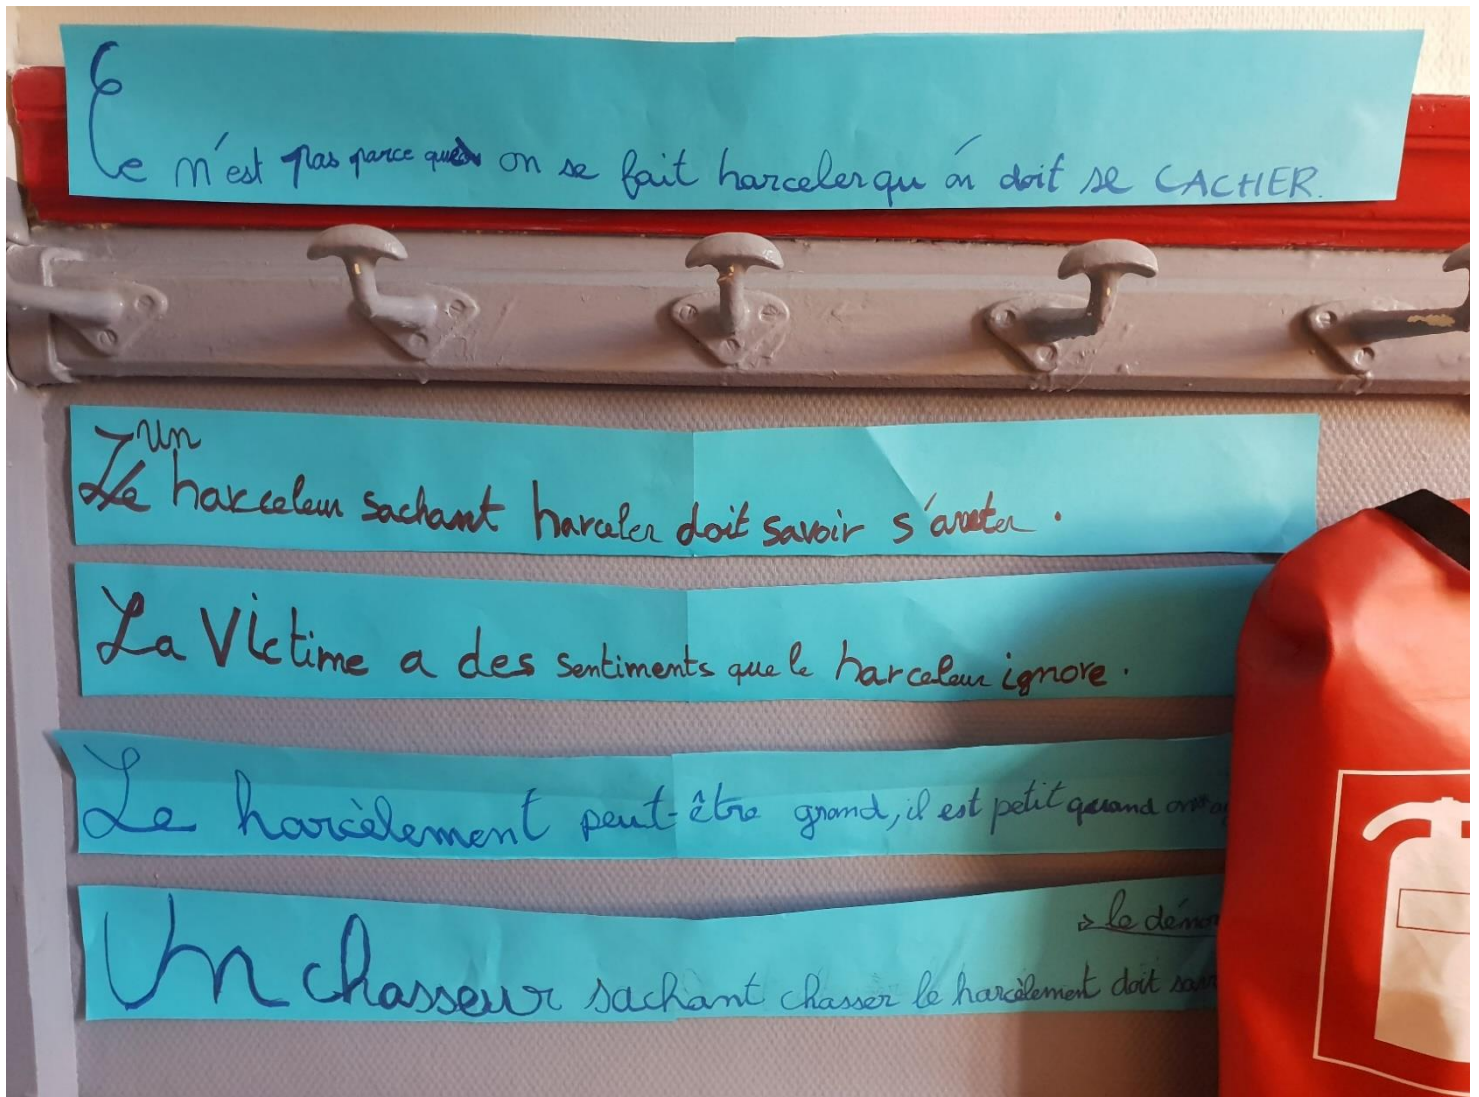 Ce n'est pas parce que on se fait harceler qu'on doit se CACHER.
Un
harceleur sachant harceler doit savoir s'arreter.
La Victime a des sentiments que le harceleur ignore.
Le harcèlement peut-être grand, il est petit quand on
→ le dénon
Un chasseur sachant chasser le harcèlement doit sav